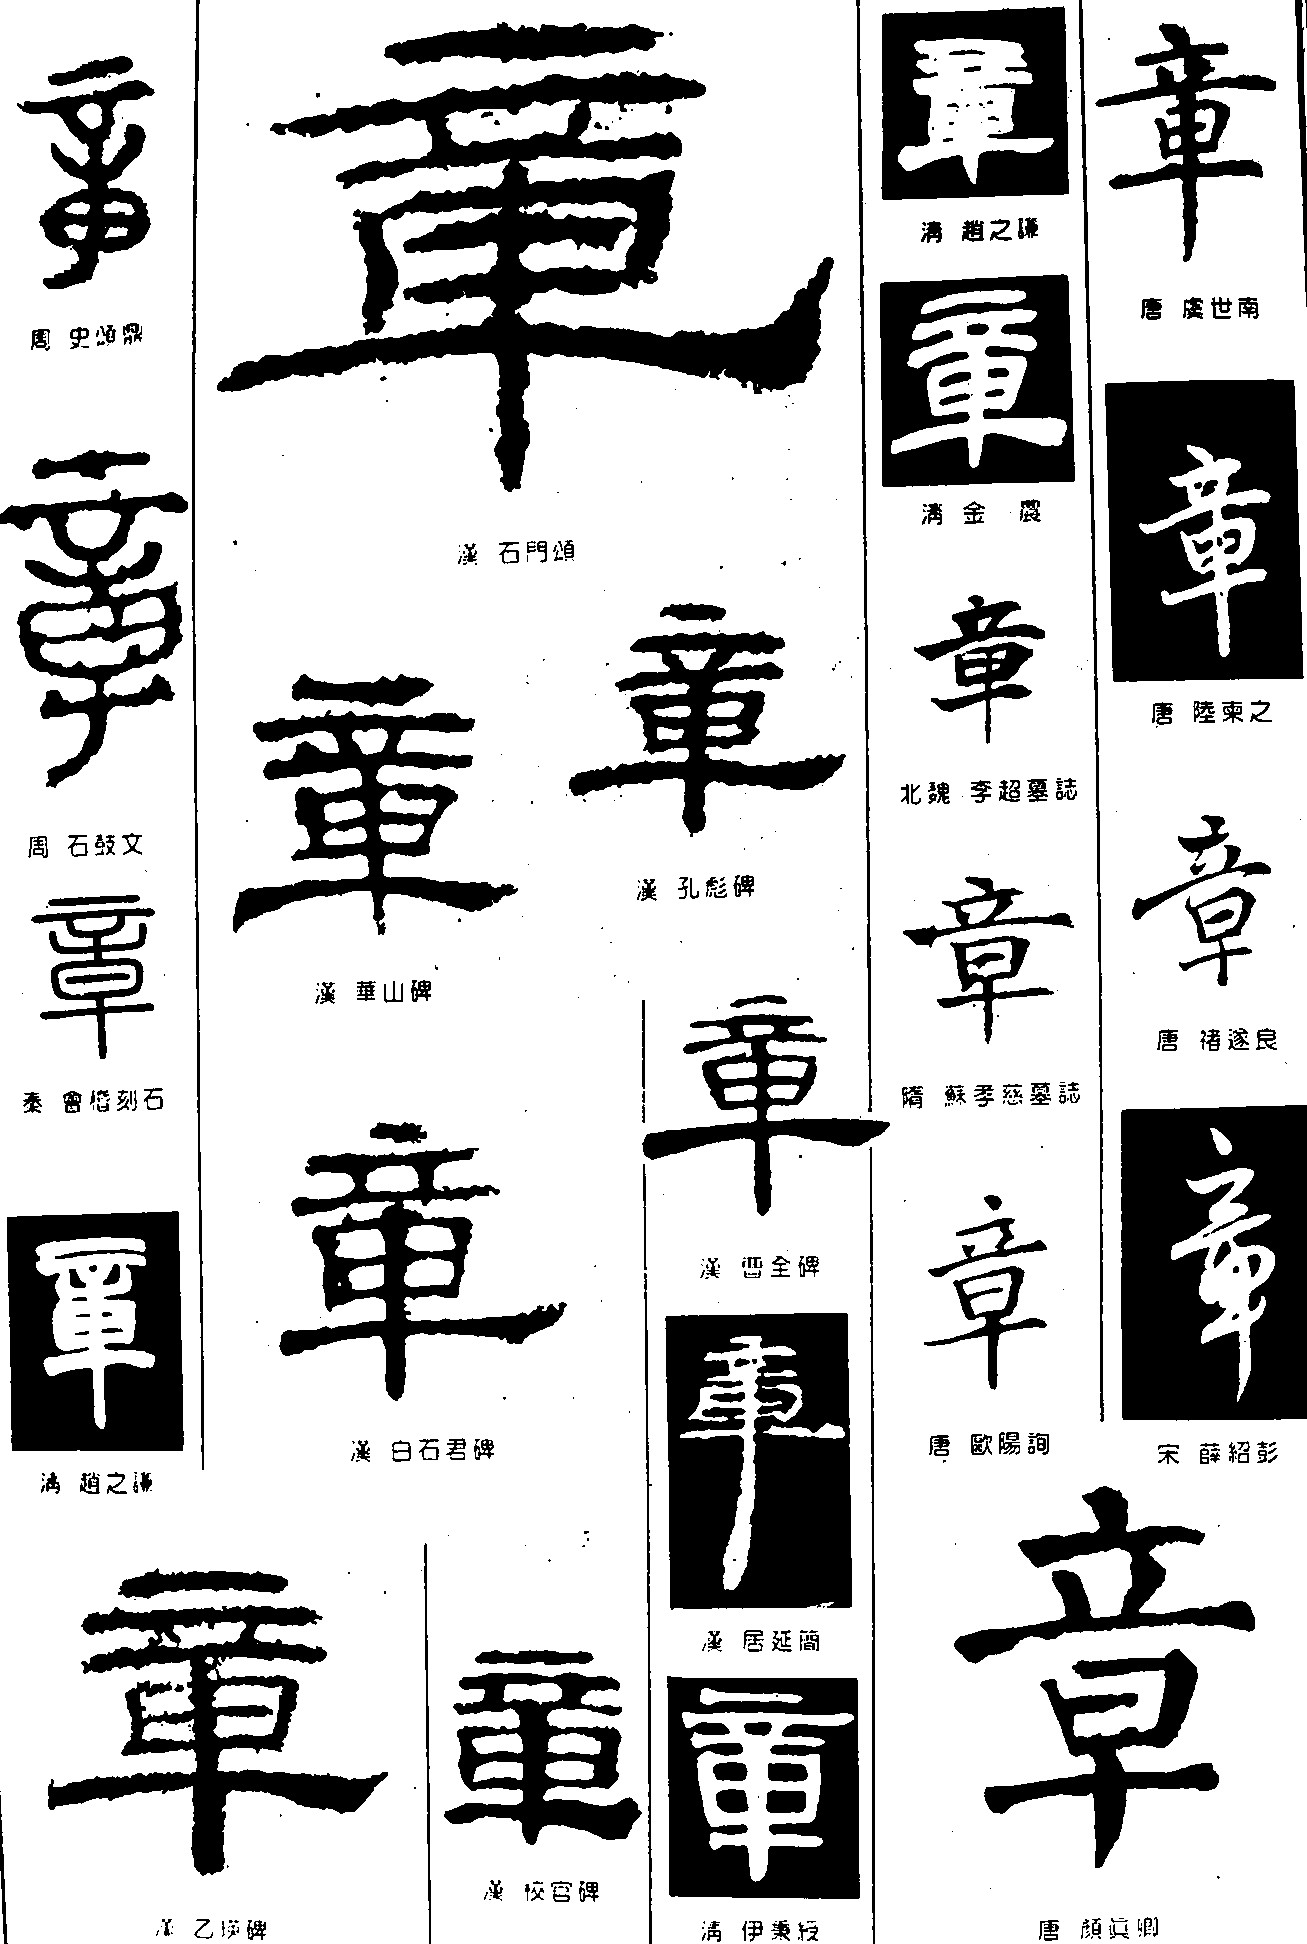 章
唐 虞世南
章
唐 陸柬之
章
唐 褚遂良
章
宋 薛紹彭
章
唐 顏真卿
章
清 趙之謙
章
清 金農
章
北魏 李超墓誌
章
隋 蘇孝慈墓誌
章
唐 歐陽詢
章
漢 石門頌
章
漢 孔彪碑
章
漢 華山碑
章
漢 曹全碑
章
漢 白石君碑
章
漢 居延簡
章
清 伊秉綬
章
漢 校官碑
章
漢 乙瑛碑
章
周 史頌鼎
章
周 石鼓文
章
秦 會稽刻石
章
清 趙之謙